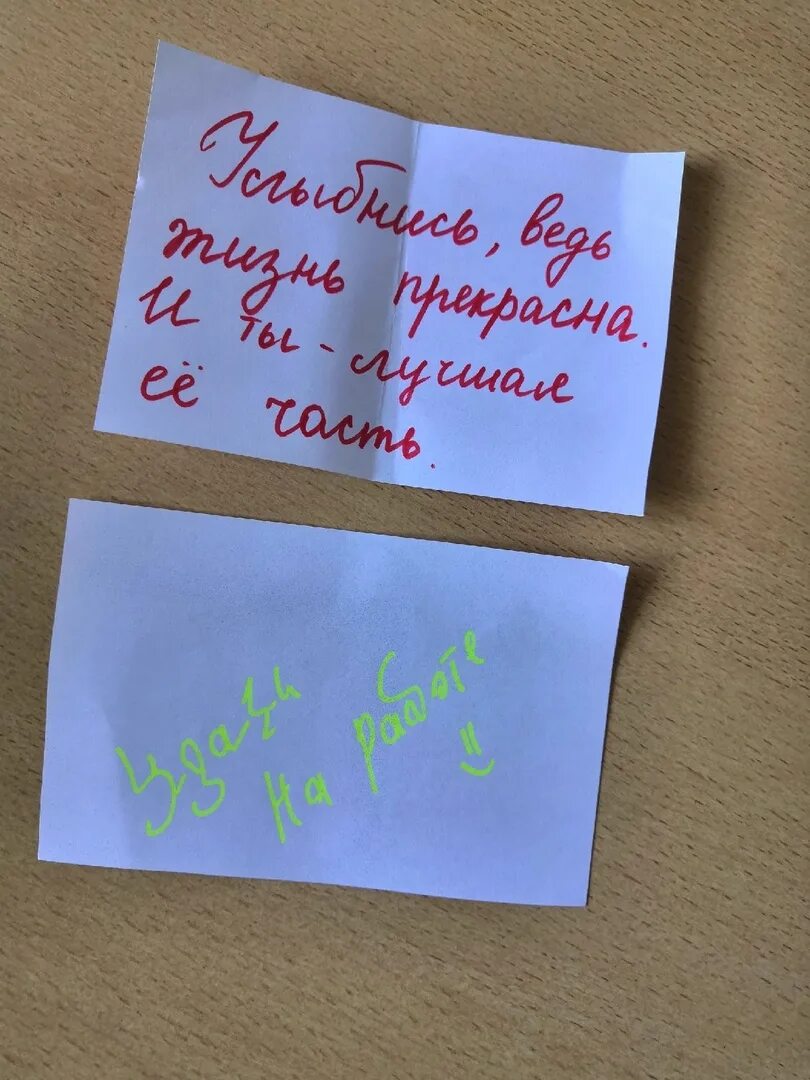 Улыбнись, ведь
жизнь прекрасна.
И ты - лучшая
её часть.
Удачи
на работе